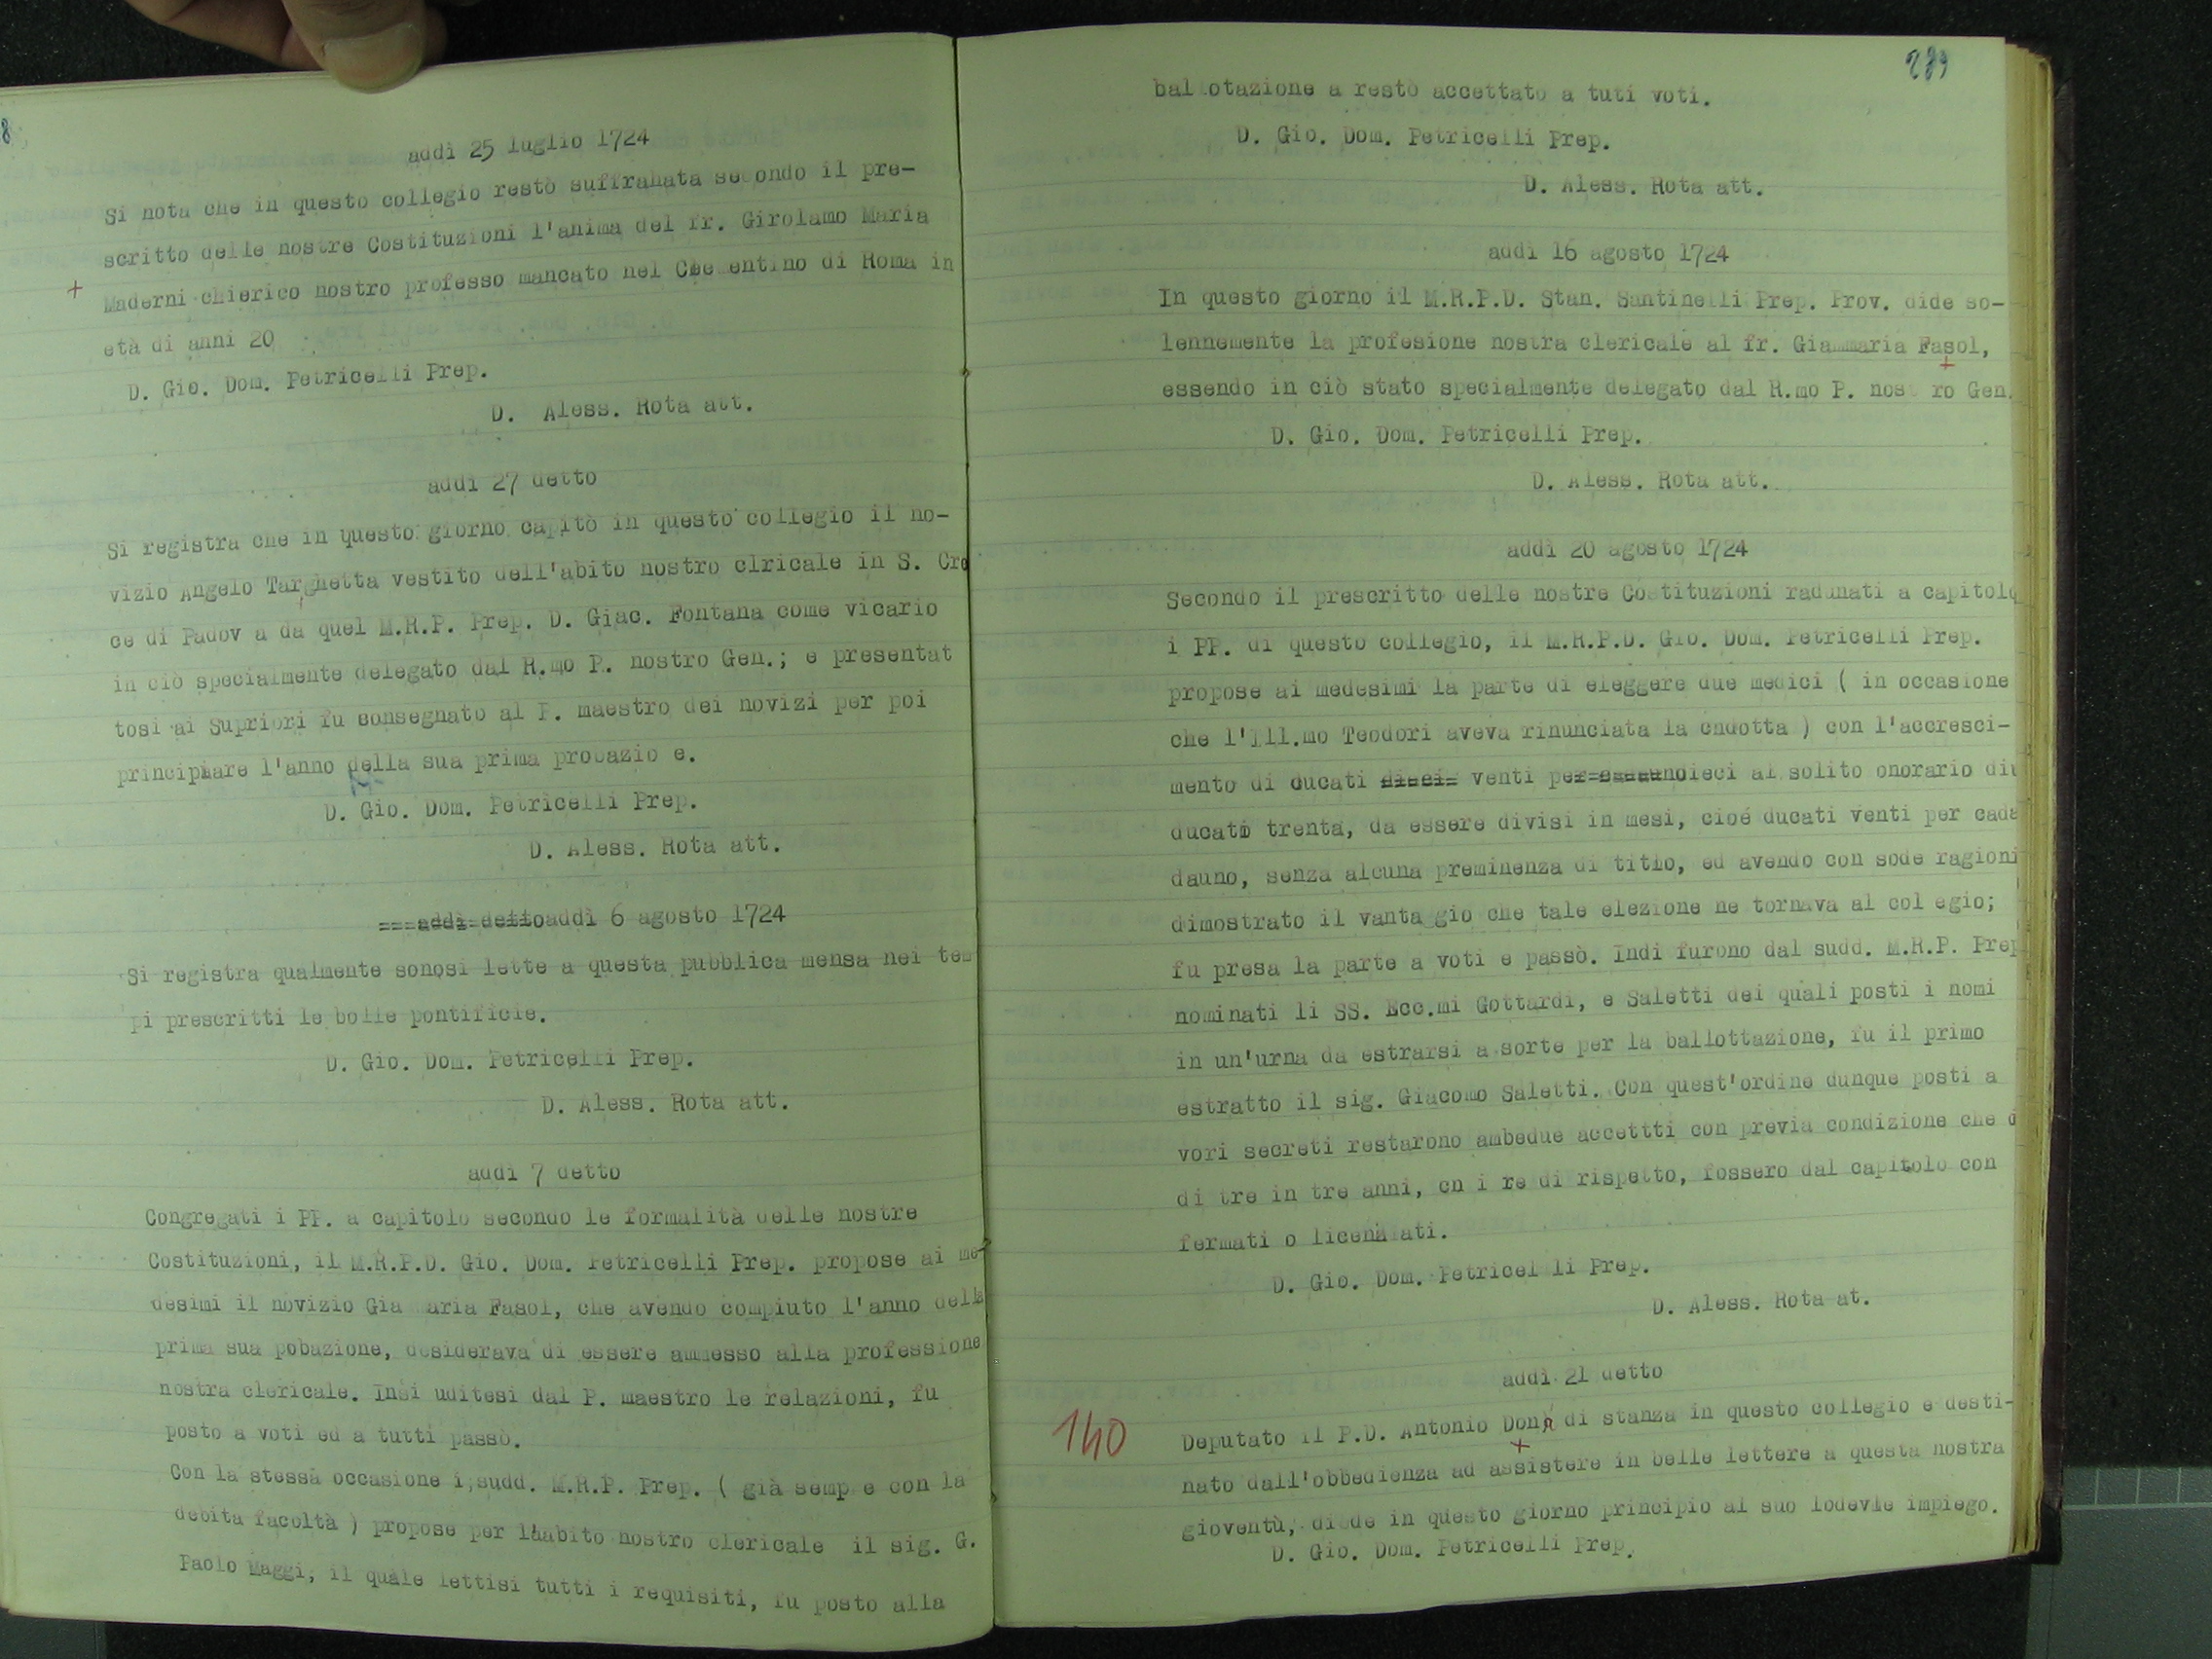 8
addì 25 luglio 1724
Si nota che in questo collegio restò suffrahata secondo il pre-
scritto delle nostre Costituzioni l'anima del fr. Girolamo Maria
+ Maderni chierico nostro professo mancato nel entino di Roma in
età di anni 20
D. Gio. Dom. Petricelli Prep.
D. Aless. Rota att.
addì 27 detto
Si registra che in questo giorno capitò in questo collegio il no-
vizio Angelo Targhetta vestito dell'abito nostro clricale in S. Cro
ce di Padov a da quel M.R.P. Prep. D. Giac. Fontana come vicario
in ciò specialmente delegato dal R.mo P. nostro Gen.; e presentat
tosi ai Supriori fu consegnato al P. maestro dei novizi per poi
principiare l'anno della sua prima probazio e.
D. Gio. Dom. Petricelli Prep.
D. Aless. Rota att.
===addì dettoaddì 6 agosto 1724
Si registra qualmente sonosi lette a questa pubblica mensa nei tem
pi prescritti le bolle pontificie.
D. Gio. Dom. Petricelli Prep.
D. Aless. Rota att.
addì 7 detto
Congregati i PP. a capitolo secondo le formalità delle nostre
Costituzioni, il M.R.P.D. Gio. Dom. Petricelli Prep. propose ai me-
desimi il novizio Gia maria Fasol, che avendo compiuto l'anno della
prima sua pobazione, desiderava di essere ammesso alla professione
nostra clericale. Insi uditesi dal P. maestro le relazioni, fu
posto a voti ed a tutti passò.
Con la stessa occasione i sudd. M.R.P. Prep. ( già semp e con la
debita facoltà ) propose per l'abito nostro clericale il sig. G.
Paolo Maggi, il quale lettisi tutti i requisiti, fu posto alla
289
ballotazione a restò accettato a tuti voti.
D. Gio. Dom. Petricelli Prep.
D. Aless. Rota att.
addì 16 agosto 1724
In questo giorno il M.R.P.D. Stan. Santinelli Prep. Prov. dide so-
lennemente la profesione nostra clericale al fr. Giammaria Fasol,
+
essendo in ciò stato specialmente delegato dal R.mo P. nost ro Gen.
D. Gio. Dom. Petricelli Prep.
D. Aless. Rota att.
addì 20 agosto 1724
Secondo il prescritto delle nostre Costituzioni radunati a capitolo
i PP. di questo collegio, il M.R.P.D. Gio. Dom. Petricelli Prep.
propose ai medesimi la parte di eleggere due medici ( in occasione
che l'Ill.mo Teodori aveva rinunciata la cndotta ) con l'accresci-
mento di ducati dieci= venti dieci al solito onorario di
ducati trenta, da essere divisi in mesi, cioé ducati venti per cada
dauno, senza alcuna preminenza di titlo, ed avendo con sode ragioni
dimostrato il vanta gio che tale elezione ne tornava al col egio;
fu presa la parte a voti e passò. Indi furono dal sudd. M.R.P. Prep
nominati li SS. Ecc.mi Gottardi, e Saletti dei quali posti i nomi
in un'urna da estrarsi a sorte per la ballottazione, fu il primo
estratto il sig. Giacomo Saletti. Con quest'ordine dunque posti a
vori secreti restarono ambedue accettti con previa condizione che d
di tre in tre anni, cn i re di rispetto, fossero dal capitolo con
fermati o licenz ati.
D. Gio. Dom. Petricel li Prep.
D. Aless. Rota at.
addì 21 detto
140
Deputato il P.D. Antonio Donà di stanza in questo collegio e desti-
+
nato dall'obbedienza ad assistere in belle lettere a questa nostra
gioventù, diede in questo giorno principio al suo lodevle impiego.
D. Gio. Dom. Petricelli Prep.